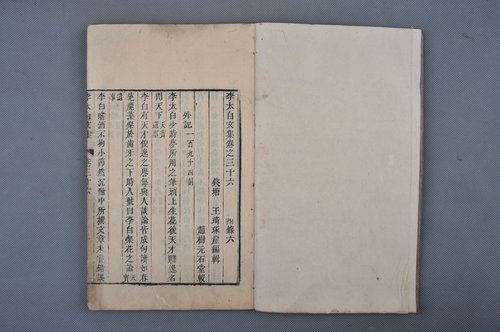 李太白文集卷之三十六　附錄六
錢塘　王琦琢崖編輯
趙樹元石堂較
外記一百九十四則
李太白少時夢所用之筆頭上生花後天才贍逸名
聞天下天寶遺事
李白有天才俊逸之譽每與人談論皆成句讀如春
葩麗藻粲於齒牙之下時人號曰李白粲花之論天寶
遺事
李白嗜酒不拘小節然沉酣中所撰文章未嘗錯誤
李太白文集　卷三十六